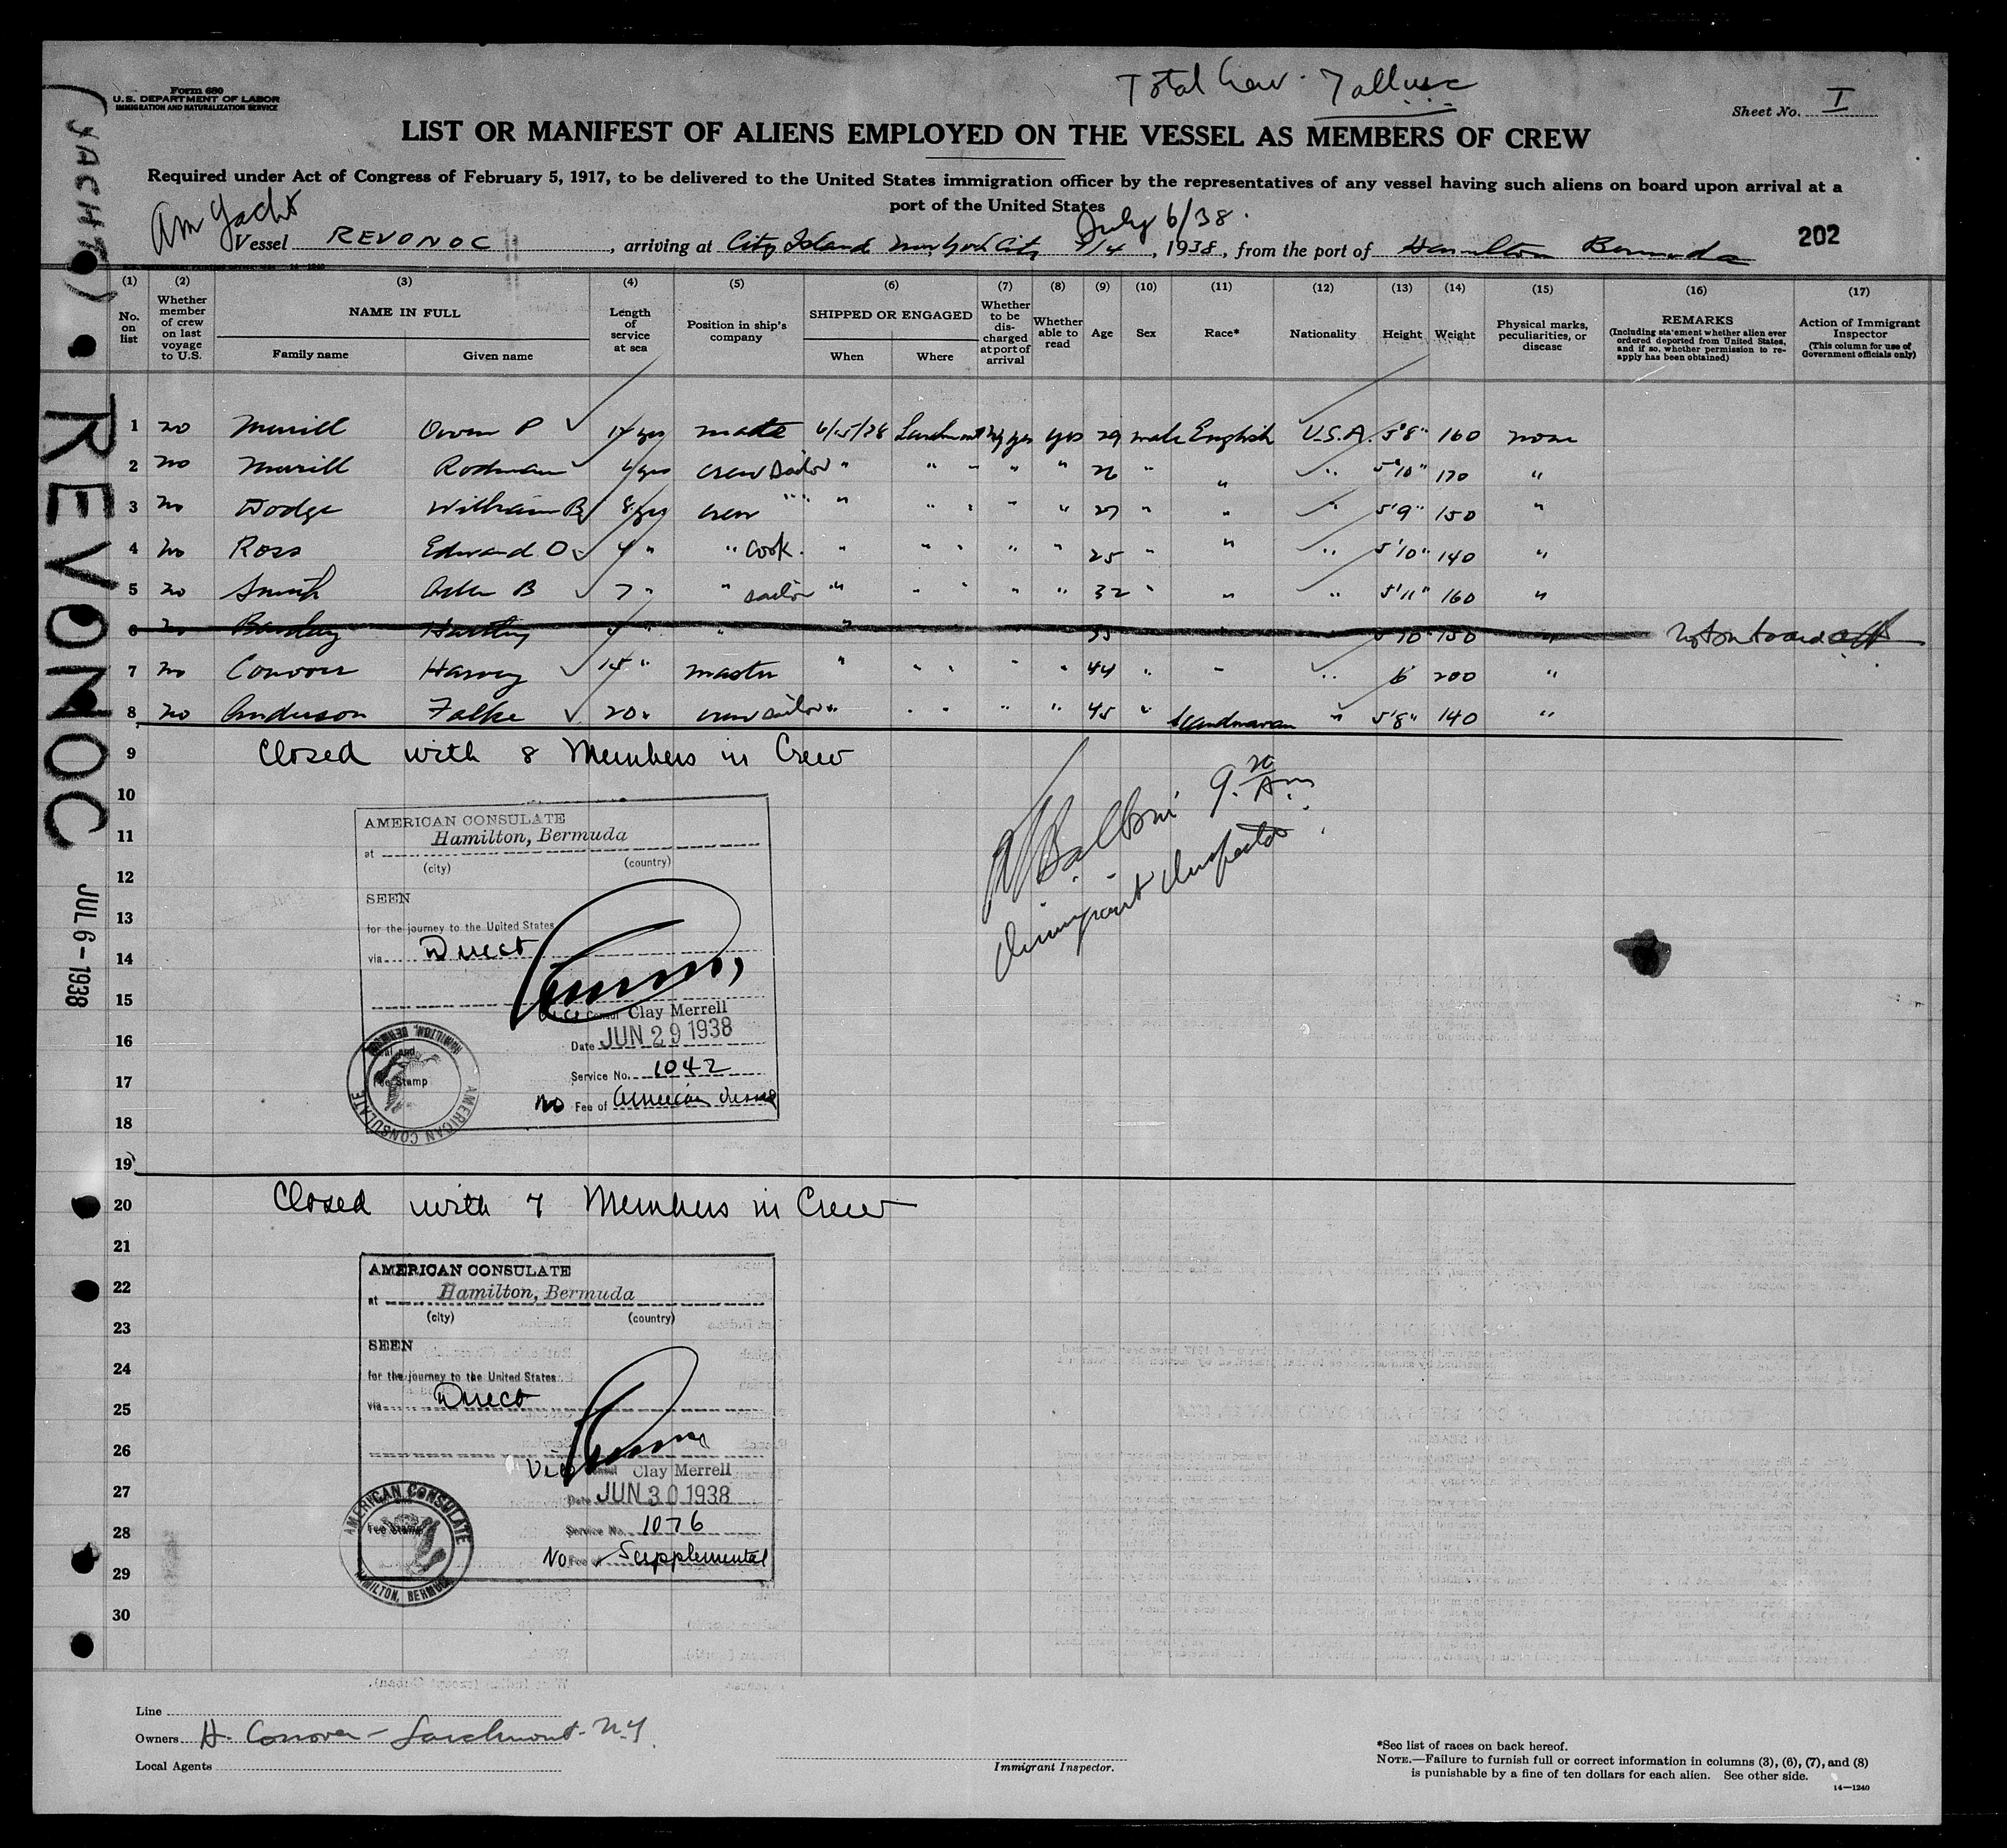 Form 680
U.S. DEPARTMENT OF LABOR
IMMIGRATION AND NATURALIZATION SERVICE
Total Crew - 7 all U.S.C.
Sheet No. I
LIST OR MANIFEST OF ALIENS EMPLOYED ON THE VESSEL AS MEMBERS OF CREW
Required under Act of Congress of February 5, 1917, to be delivered to the United States immigration officer by the representatives of any vessel having such aliens on board upon arrival at a
port of the United States
Am Yacht
July 6/38.
Vessel REVONOC, arriving at City Island New York City 7/4, 1938, from the port of Hamilton Bermuda
202
(YACHT)
REVONOC
JUL 6-1938
(1) (2) (3) (4) (5) (6) (7) (8) (9) (10) (11) (12) (13) (14) (15) (16) (17)
No. on list
Whether member of crew on last voyage to U.S.
NAME IN FULL
Family name
Given name
Length of service at sea
Position in ship's company
SHIPPED OR ENGAGED
When
Where
Whether to be discharged at port of arrival
Whether able to read
Age
Sex
Race*
Nationality
Height
Weight
Physical marks, peculiarities, or disease
REMARKS
(Including statement whether alien ever ordered deported from United States, and if so, whether permission to reapply has been obtained)
Action of Immigrant Inspector
(This column for use of Government officials only)
1 no Merrill Owen P 14 yrs mate 6/15/38 Larchmont NY yes yes 29 male English U.S.A. 5'8" 160 none
2 no Merrill Rodman 6 yrs crew sailor " " " " " 26 " " " 5'10" 170 "
3 no Dodge William B 8 yrs crew " " " " " " " 27 " " " 5'9" 150 "
4 no Ross Edward O 4 " " cook. " " " " " 25 " " " 5'10" 140 "
5 no Smith B 7 " " sailor " " " " " 32 " " " 5'11" 160 "
6 no Barclay Hartley " " " " 150 " Not on board
7 no Conover Harvey 15 " master " " " " " 44 " " " 6 200 "
8 no Anderson Falke 20 " crew sailor " " " " " 45 " Scandinavian " 5'8" 140 "
9 Closed with 8 Members in Crew
Balboni 9.20 Am.
Immigrant Inspector
10
11
12
13
14
15
16
17
18
19
AMERICAN CONSULATE
at Hamilton, Bermuda
(city) (country)
SEEN
for the journey to the United States
via Direct
Vice Consul Clay Merrell
Date JUN 29 1938
Service No. 1042
No Fee of American vessel
Seal and
Fee Stamp
AMERICAN CONSULATE
HAMILTON, BERMUDA
20 Closed with 7 Members in Crew
21
22
23
24
25
26
27
28
29
30
AMERICAN CONSULATE
at Hamilton, Bermuda
(city) (country)
SEEN
for the journey to the United States
via Direct
Vice Consul Clay Merrell
Date JUN 30 1938
Service No. 1076
No Fee of Supplemental
Fee Stamp
AMERICAN CONSULATE
HAMILTON, BERMUDA
Line
Owners H. Conover - Larchmont - N.Y.
Local Agents
Immigrant Inspector.
*See list of races on back hereof.
NOTE.—Failure to furnish full or correct information in columns (3), (6), (7), and (8)
is punishable by a fine of ten dollars for each alien. See other side.
14—1240